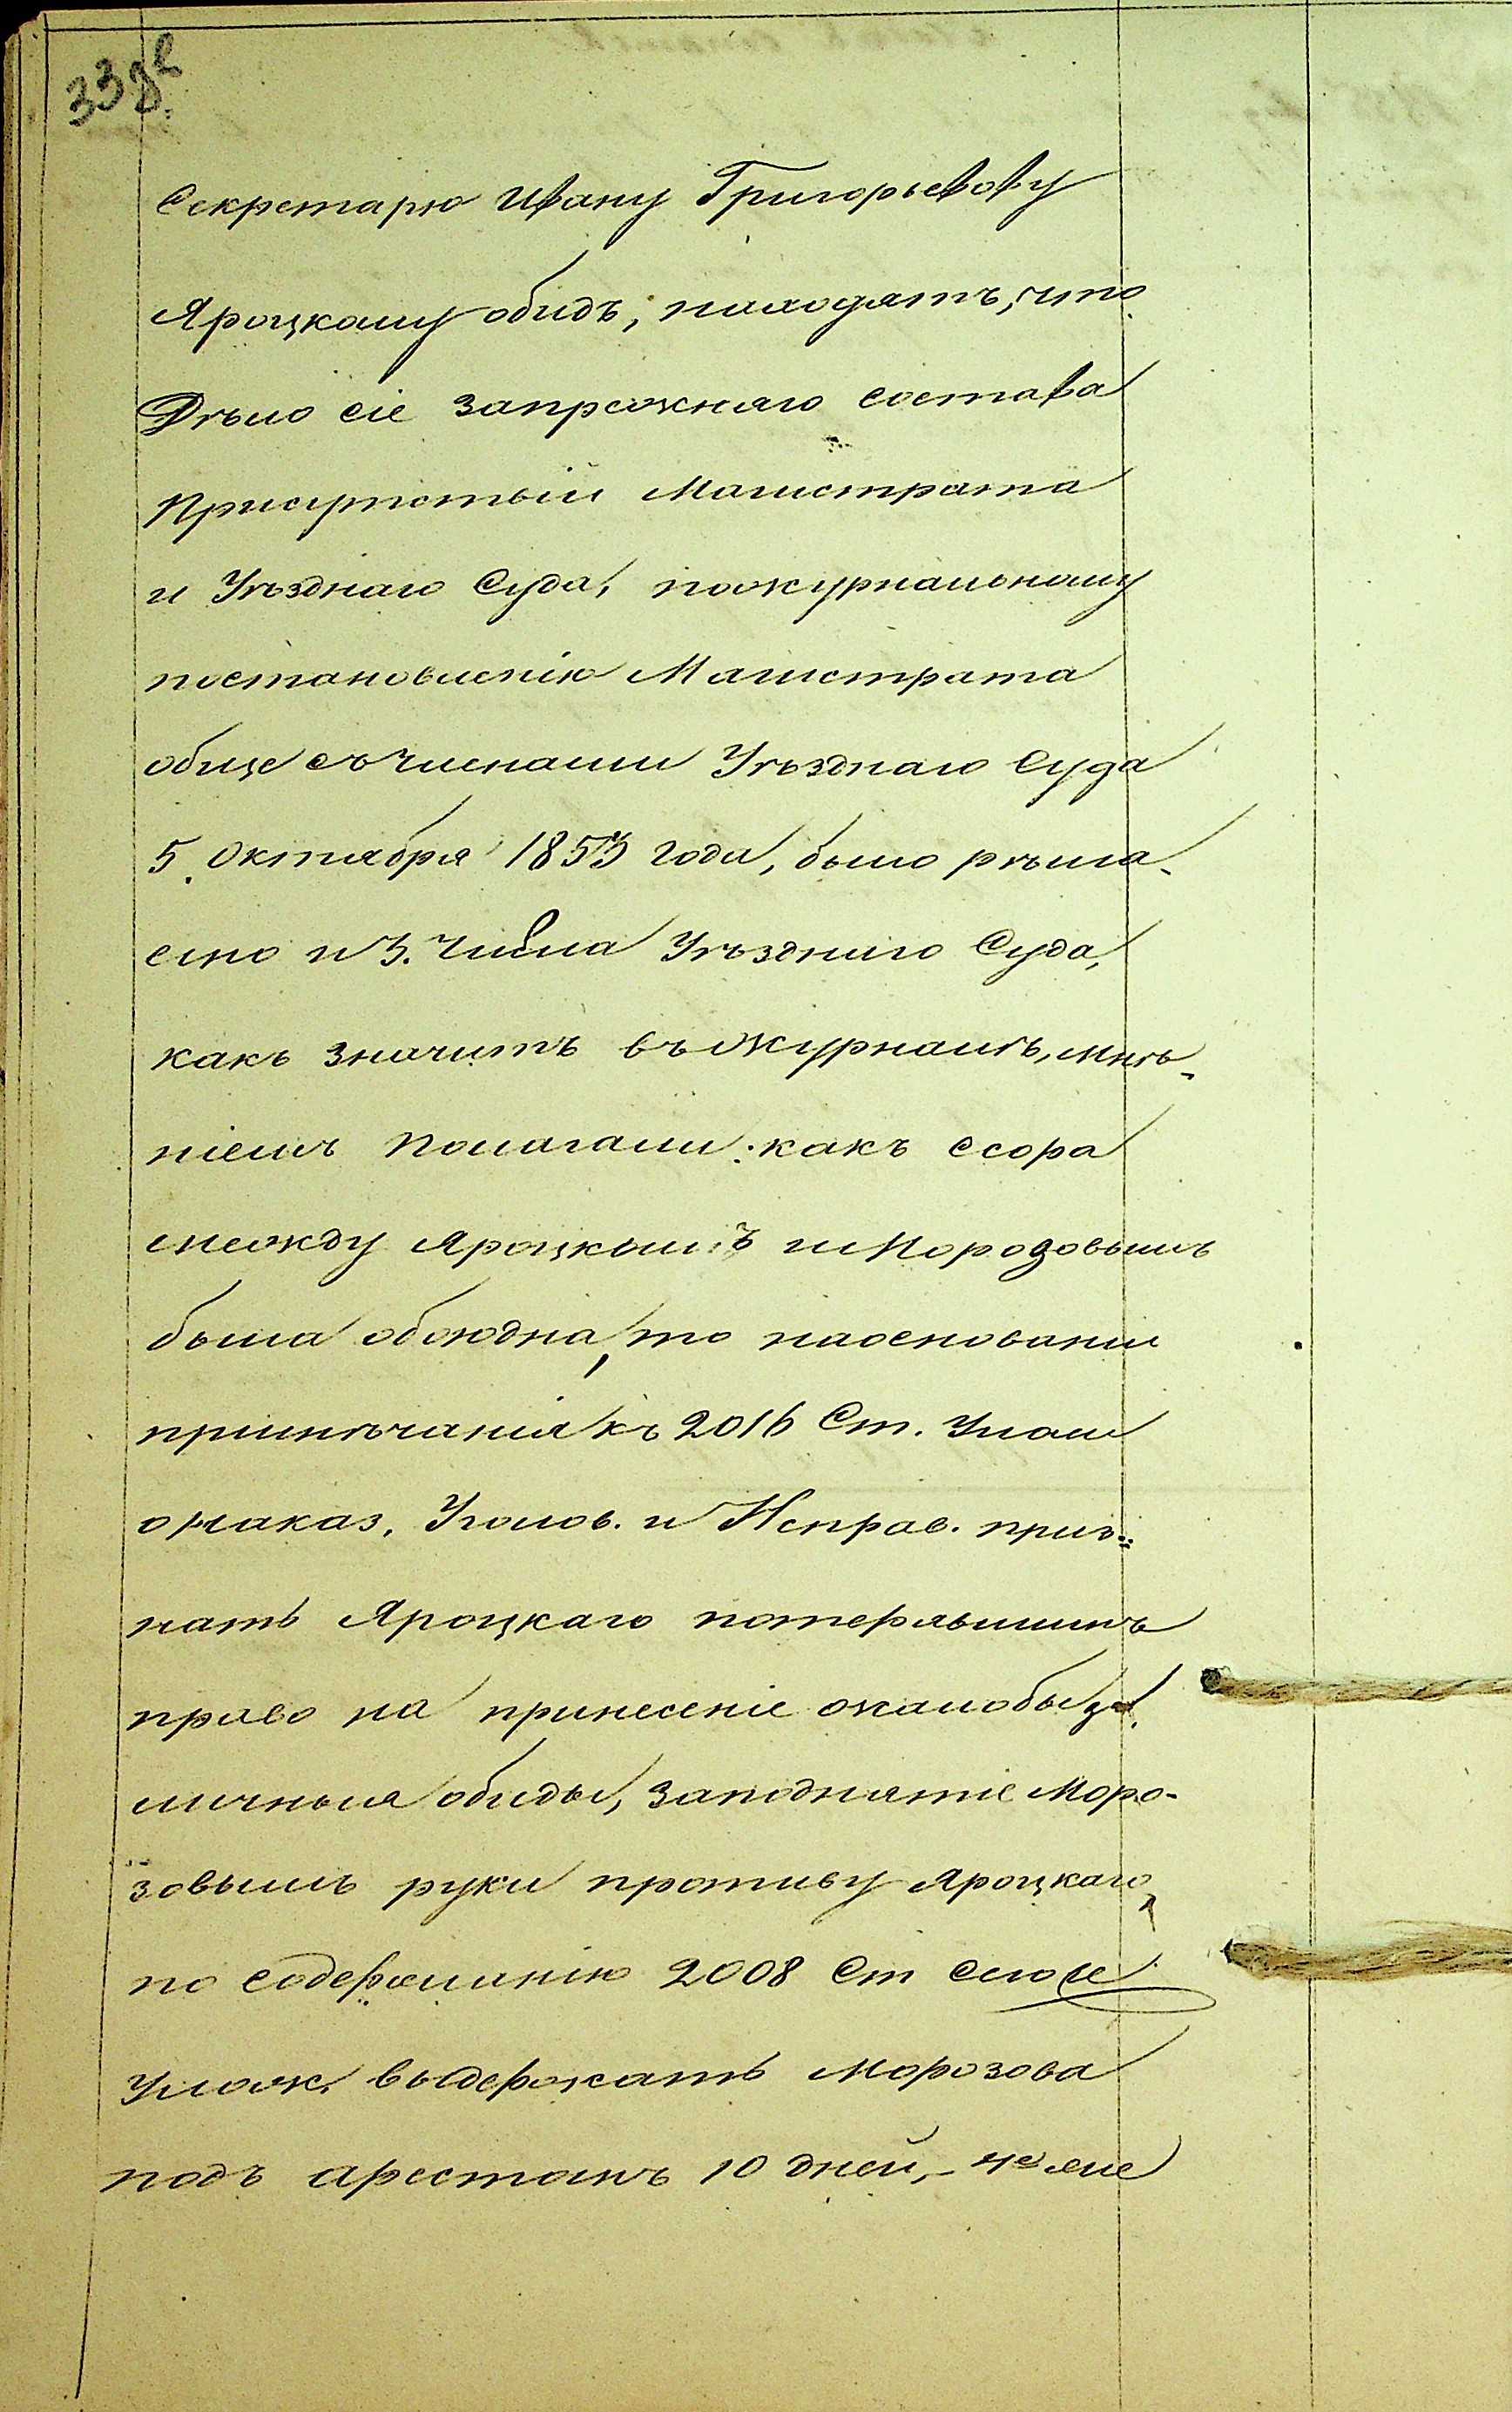 Секретарю Ивану Григорьевову
Яроцкому обидъ, находятъ, что
Дѣло сіе запрежняго состава
присутствій Магистрата
и Уѣзднаго Суда, пожурнальному
постановленію Магистрата
обще съчленами Уѣзднаго Суда
5. Октября 1853 года, было рѣша-
емо и 3. Члена Уѣзднаго Суда,
какъ значитъ въЖурналѣ, мнѣ-
ніемъ полагали: какъ ссора
между Яроцкимъ иМорозовымъ
была обоюдна, то наосновании
примѣчанія къ 2016 Ст. Улож
онаказ. Уголов. и Исправ. приз-
нать Яроцкаго потерявшимъ
право на принесеніе жалобы за
личныя обиды, заподнятіе Моро-
зовымъ руки противу Яроцкаго,
по содержанію 2008 Ст
Улож. выдержать Морозова
подъ арестомъ 10 дней,